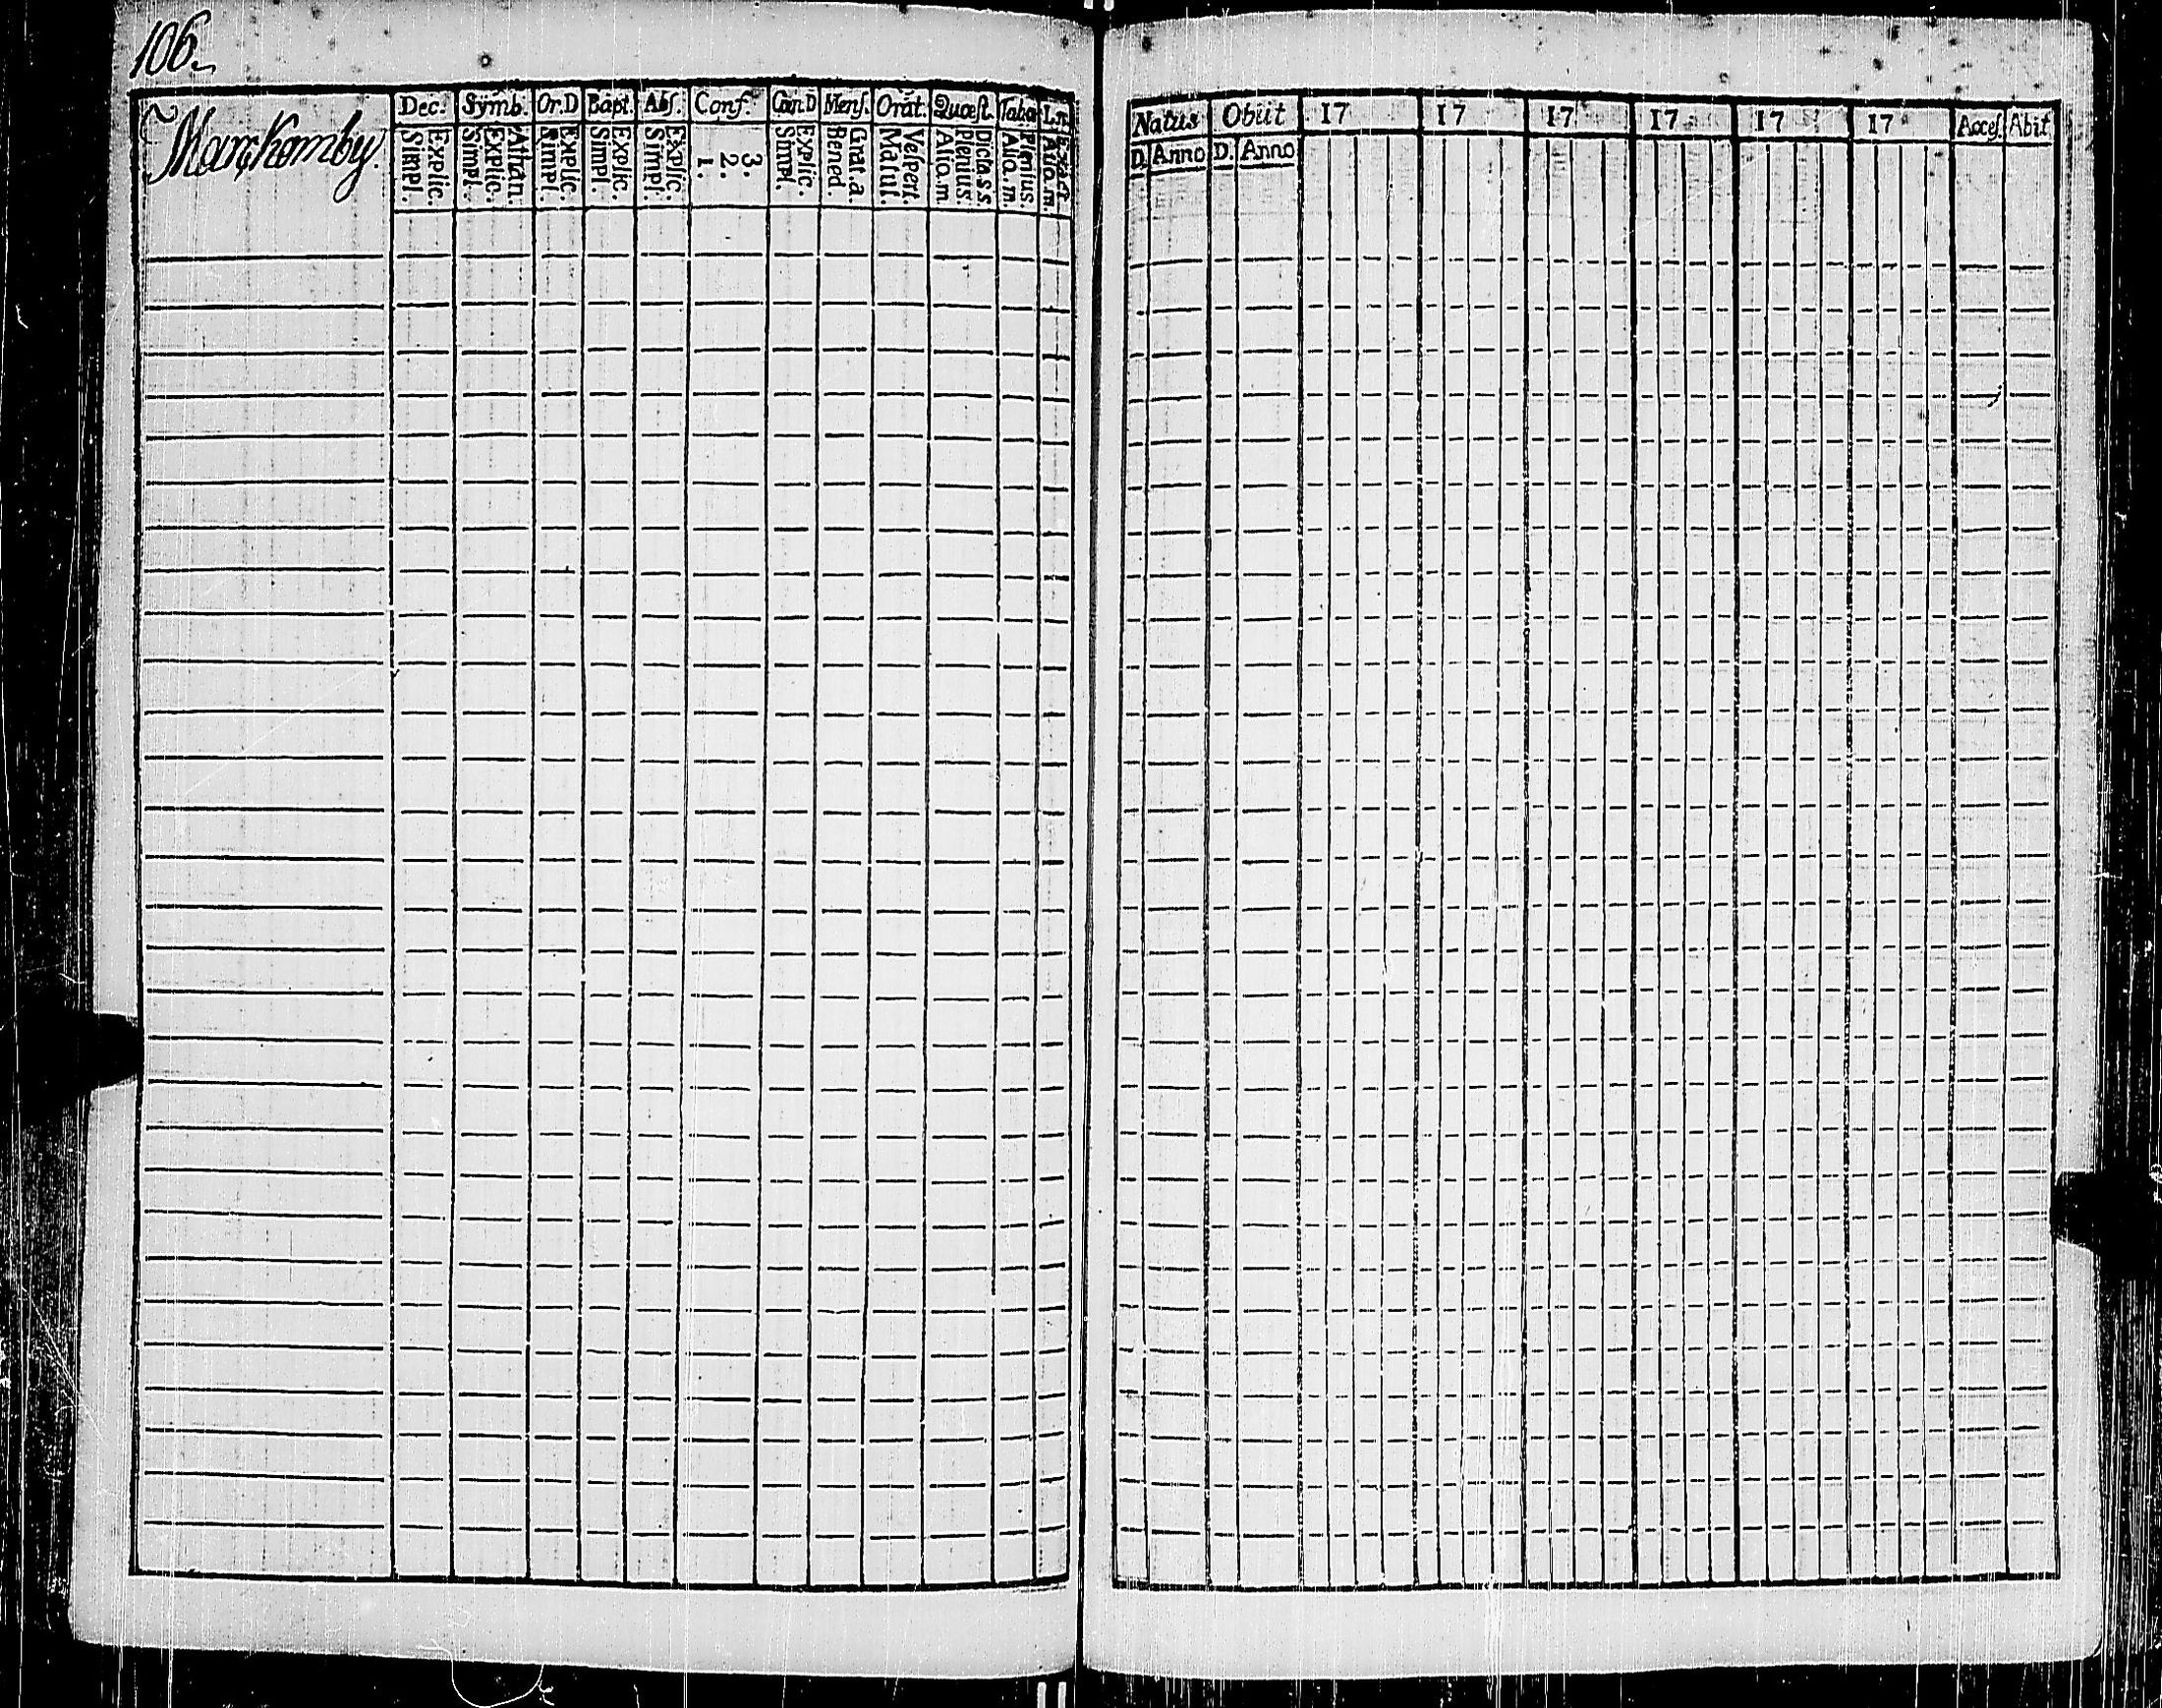 106.
Dec. Symb. Or.D Bapt. Abſ. Conf. Cœn.D Menſ. Orat. Quæſt. Taba
Markomby.
Explic. Athan. Explic. Explic. Explic. 3. Explic. Grat.a. Veſpert. Dicta.s.s. Plenius
Simpl. Explic. Simpl. Simpl. Simpl. 2. Simpl. Bened. Matut. Plenius. Alio.m
Simpl. 1. Alio.m. Alio.m
Natus Obiit 17 17 17 17 17 17 Acceſ Abit
D. Anno D. Anno